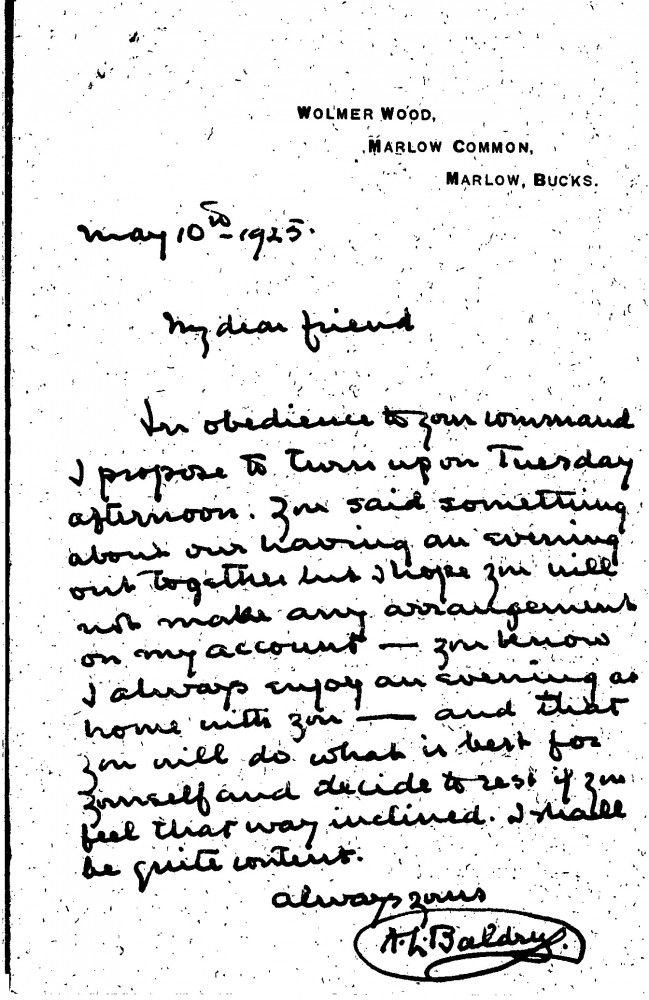 WOLMER WOOD,
MARLOW COMMON,
MARLOW, BUCKS.
May 10th - 1925.
My dear friend
In obedience to your command
I propose to turn up on Tuesday
afternoon. You said something
about our having an evening
out together but I hope you will
not make any arrangement
on my account — you know
I always enjoy an evening at
home with you — and that
you will do what is best for
yourself and decide to rest if you
feel that way inclined. I shall
be quite content.
Always yours
A. L. Baldry.